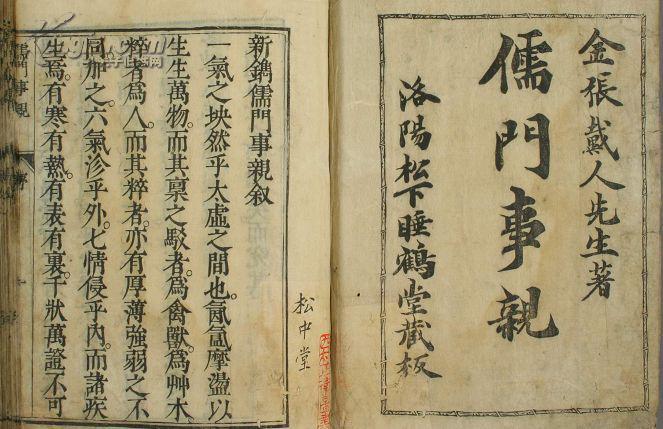 金張戴人先生著
儒門事親
洛陽松下睡鶴堂藏板
松中堂
新鐫儒門事親叙
一氣之坱然乎太虛之間也氤氳摩盪以
生生萬物而其稟之駁者爲禽獸爲艸木
粹者爲人而其粹者亦有厚薄強弱之不
同加之六氣沴乎外七情侵乎內而諸疾
生焉有寒有熱有表有裏千狀萬證不可
儒門事親